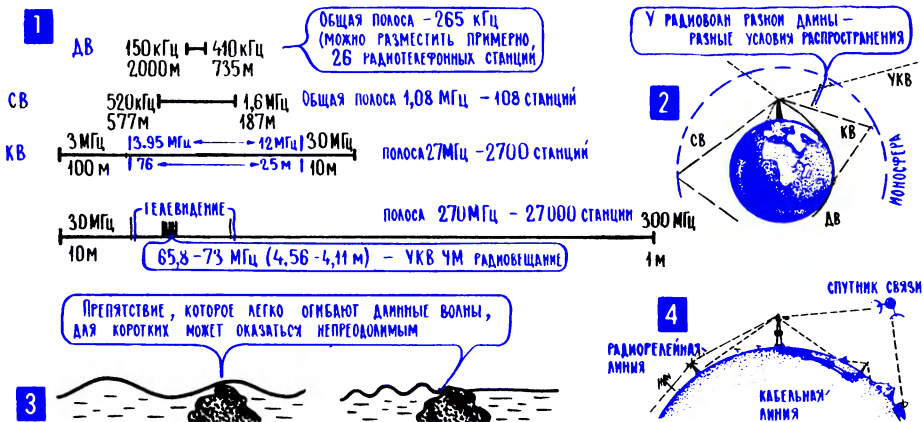 1
ДВ
150кГц 410кГц
2000м 735м
Общая полоса – 265 кГц
(можно разместить примерно
26 радиотелефонных станций
СВ
520кГц 1,6МГц
577м 187м
Общая полоса 1,08 МГц – 108 станций
КВ
3МГц 3.95 МГц 12МГц 30МГц
100 м 76 25 м 10м
полоса 27МГц – 2700 станций
30МГц
10м
Телевидение
полоса 270МГц – 27000 станции
300 МГц
1 м
65,8–73 МГц (4,56–4,11 м) – УКВ ЧМ радиовещание
У радиоволн разной длины –
разные условия распространения
2
УКВ
СВ
КВ
ДВ
ИОНОСФЕРА
Препятствие, которое легко огибают длинные волны,
для коротких может оказаться непреодолимым
3
4
Спутник связи
Радиорелейная
линия
Кабельная
линия